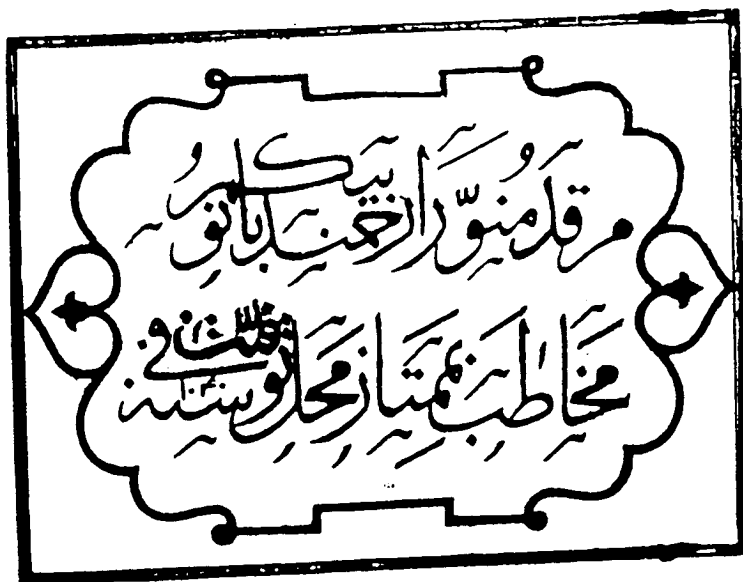 مرقد منوّر ارجمند بانو بیگم
مخاطب بممتاز محل توفیت فی سنه ۱۰۴۰